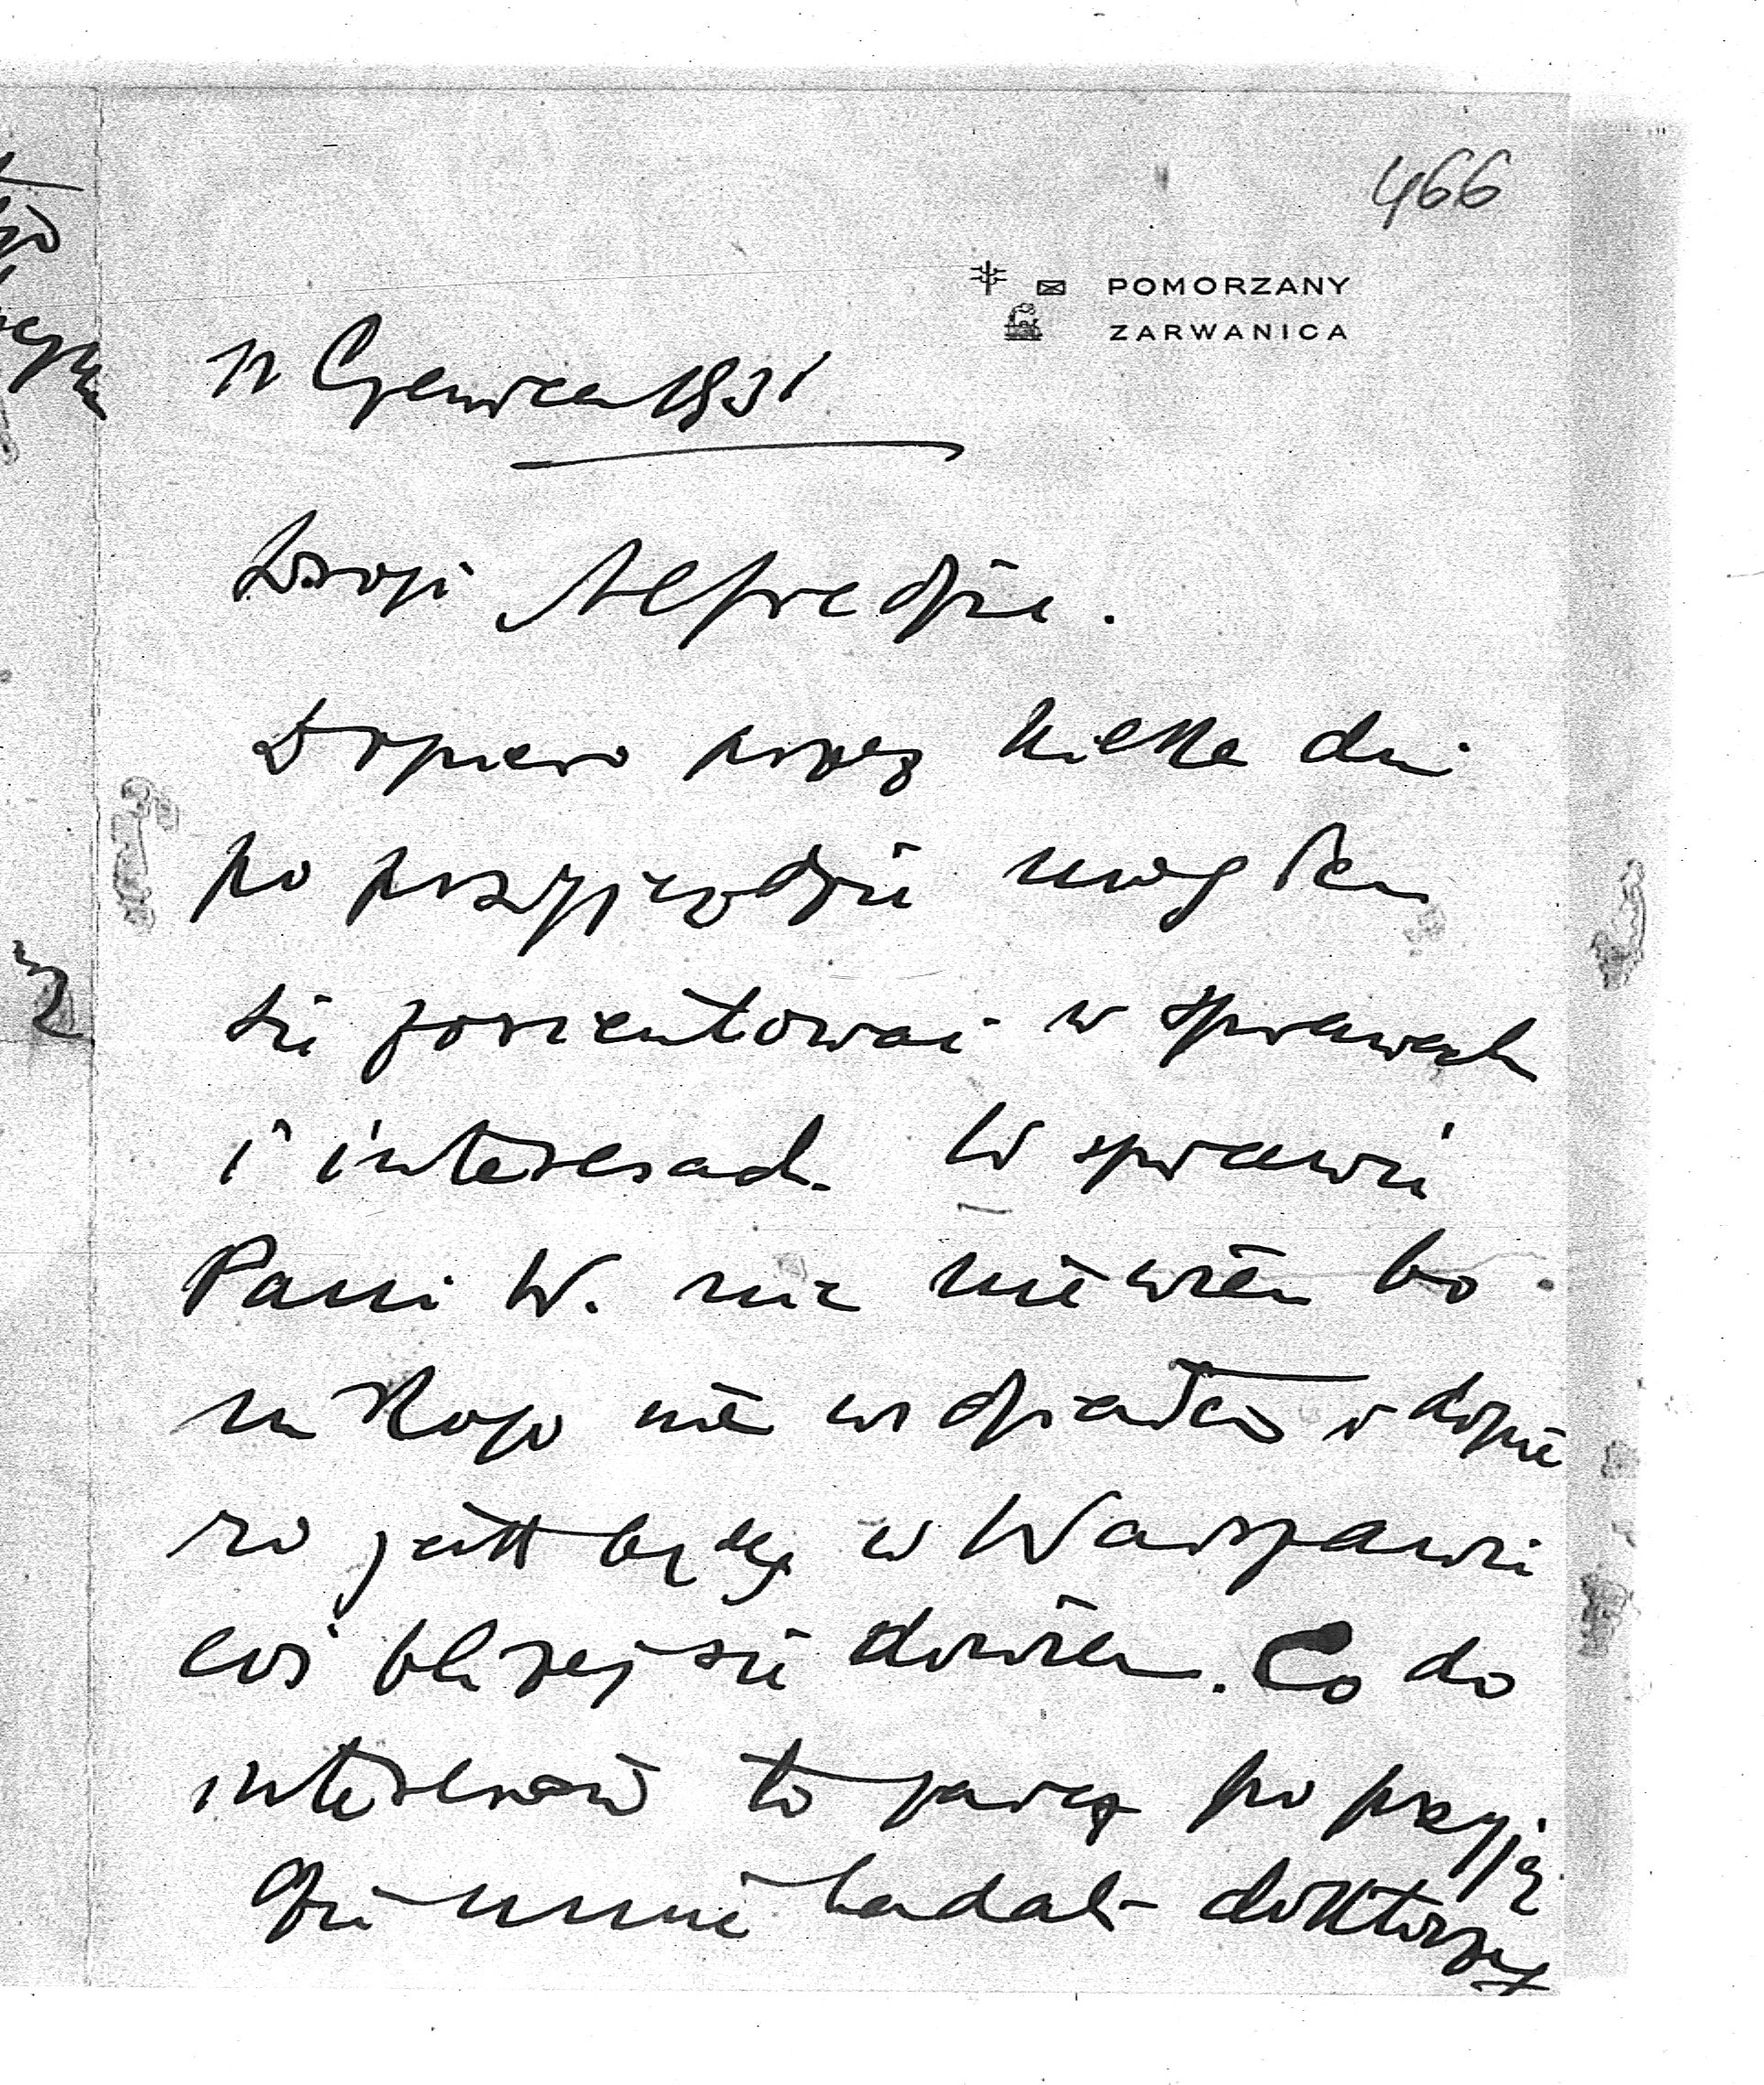 466
POMORZANY
ZARWANICA
11 Czerwca 1931
Drogi Alfredzie.
Dopiero przez kilka dni
po przyjeździe mogłem
się zorientować w sprawach
i interesach. W sprawie
Pani W. nic nie wiem bo
nikogo nie widziałem dopie
ro jak będę w Warszawie
coś bliżej się dowiem. Co do
interesów to zaraz po przyja
ździe mnie badali doktorzy